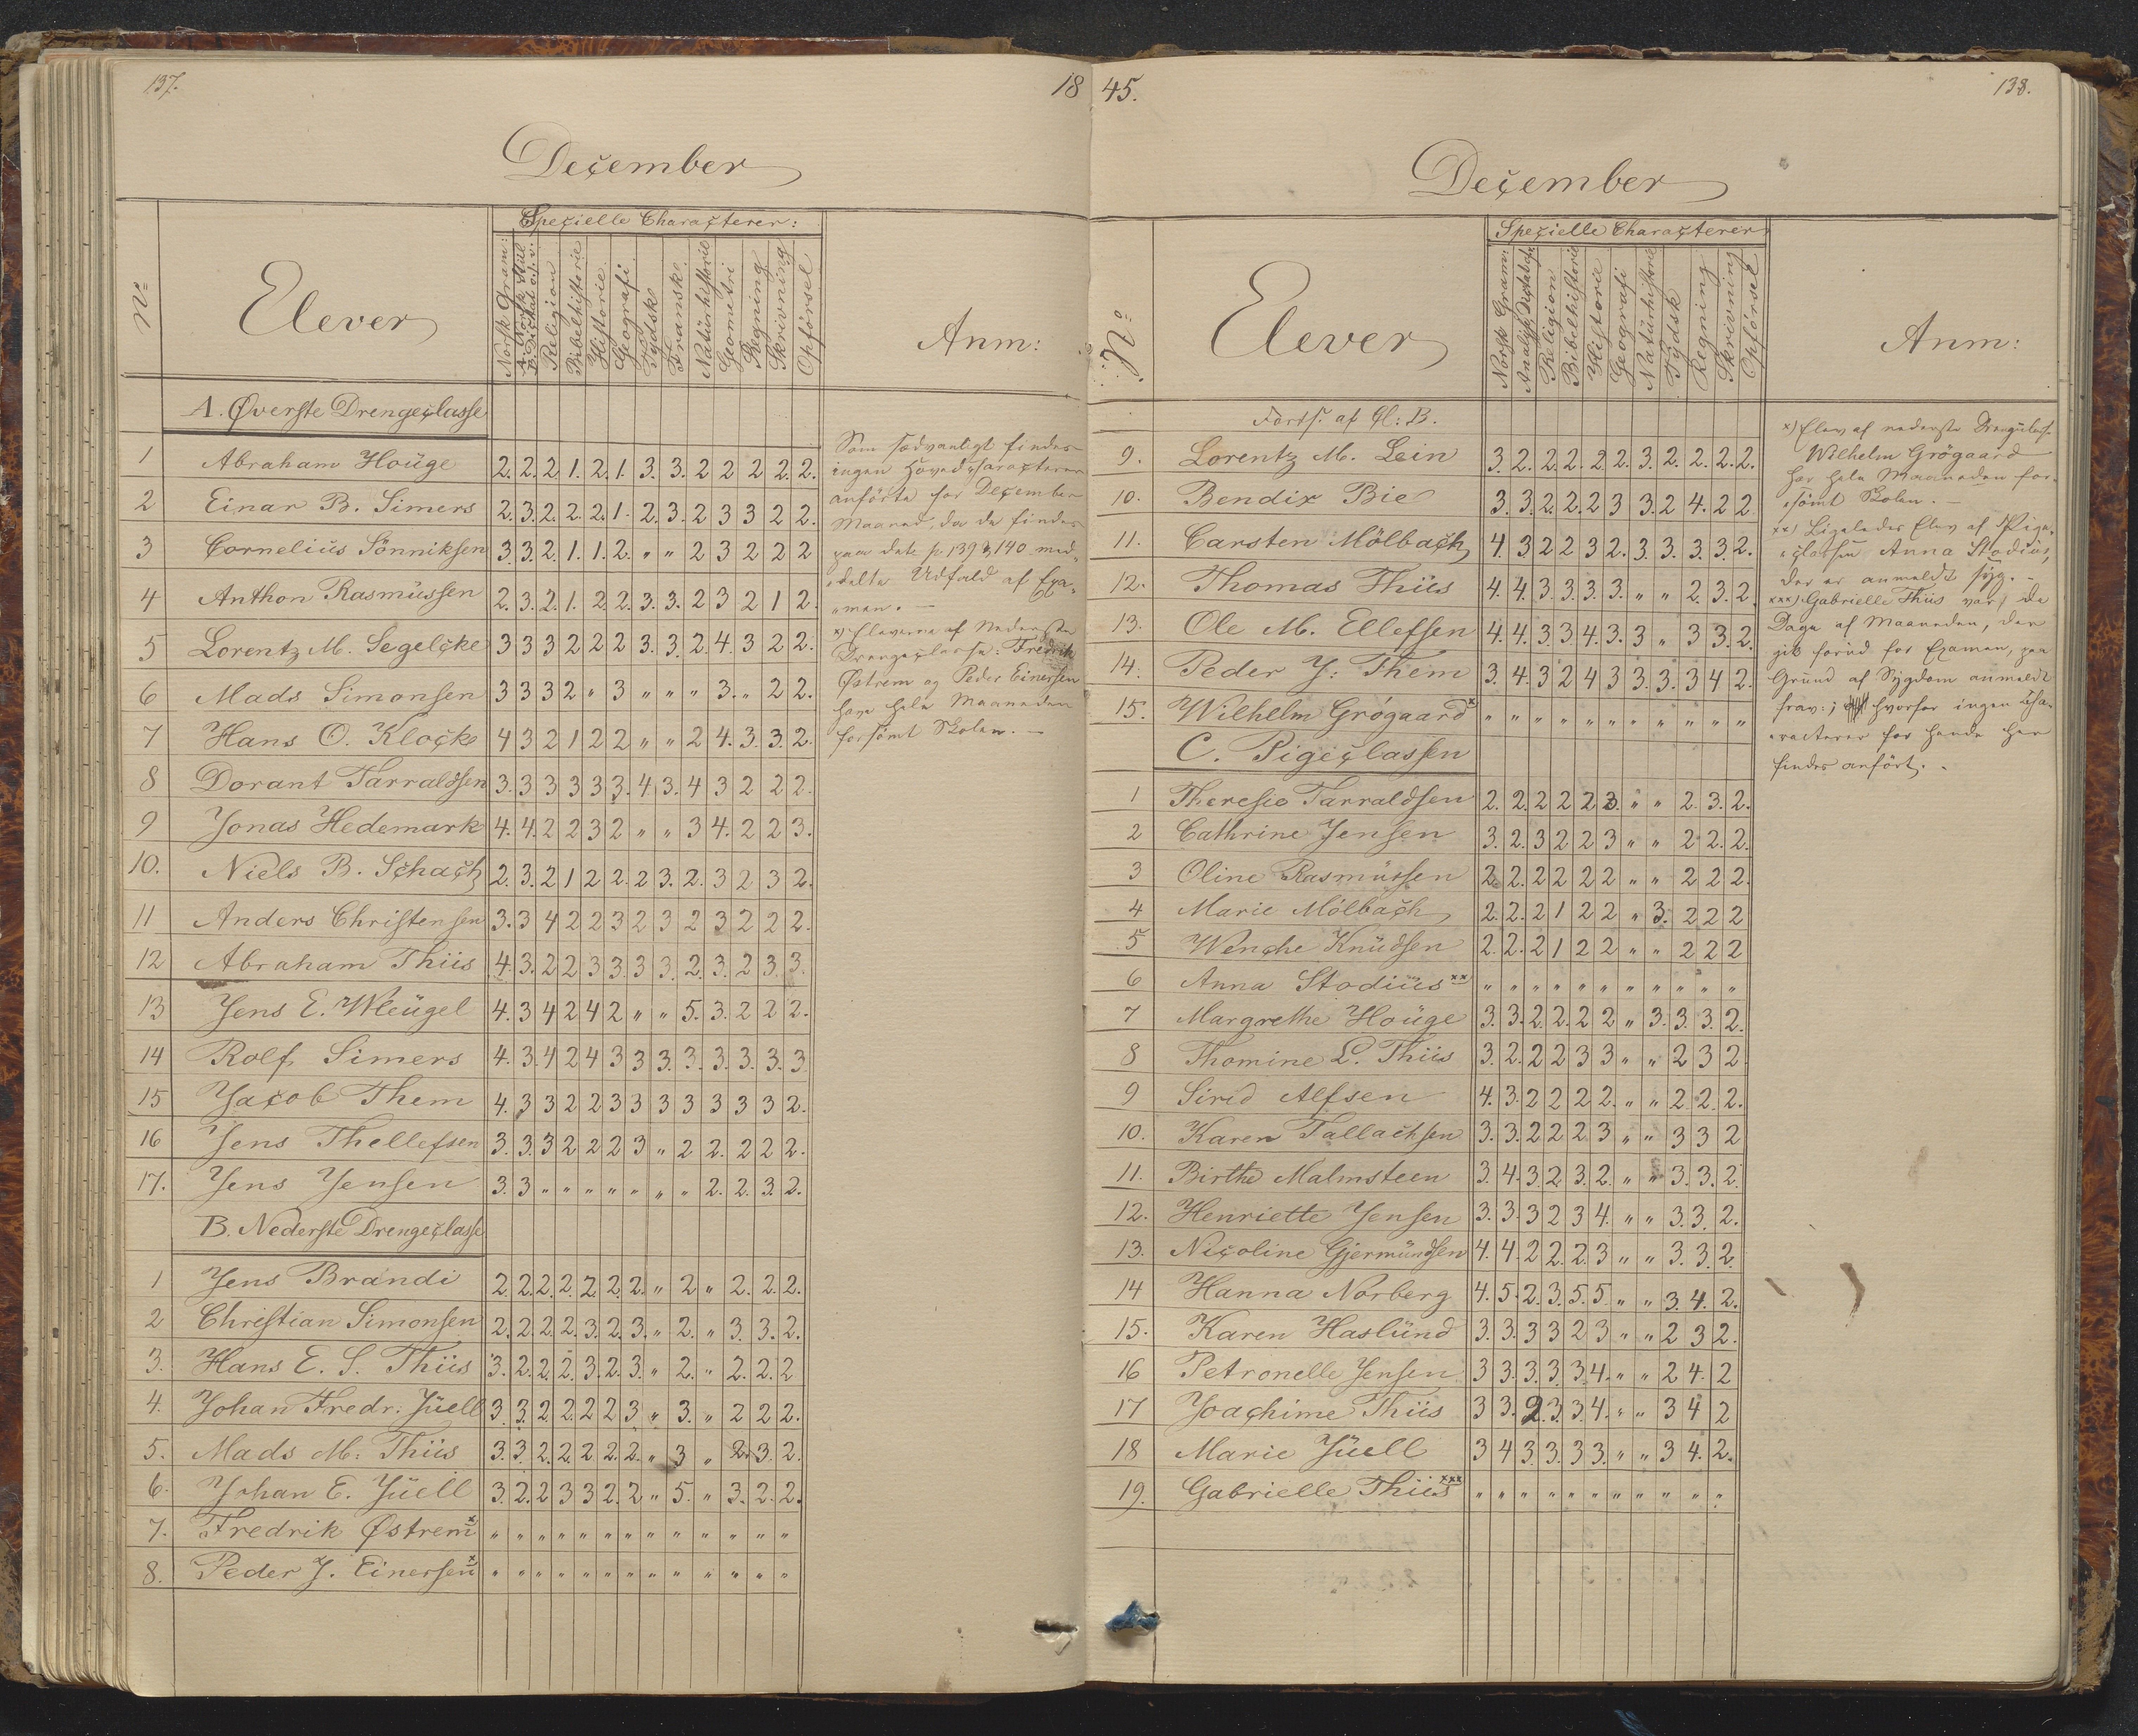 137.
18
December
Specielle Characterer:
No
Elever
Norsk Gram:
A. Norsk Stiil
B. Dictat o. s. v:
Religion
Bibelhistorie
Historie
Geografi
Tydsk
Fransk
Natürhistorie
Geometri
Regning
Skrivning
Opførsel
Anm:
A. Øverste Drengeclasse
1 Abraham Hoüge 2. 2. 2 1. 2. 1. 3. 3. 2 2 2 2. 2.
2 Einar B. Simers 2. 3. 2. 2. 2. 1. 2. 3. 2 3 3 2 2.
3 Cornelius Sönniksen 3 3. 2. 1. 1. 2. " " 2 3 2 2 2
4 Anthon Rasmüssen 2. 3. 2. 1. 2 2. 3. 3. 2 3 2 1 2.
5 Lorentz M. Segelcke 3 3 3 2 2 2 3. 3. 2. 4. 3 2 2.
6 Mads Simonsen 3 3 3 2 " 3 " " " 3. " 2 2.
7 Hans O. Klocke 4 3 2 1 2 2 " " 2 4. 3. 3. 2.
8 Dorant Tarraldsen 3. 3 3 3 3 3. 4. 3. 4 3 2 2 2.
9 Jonas Hedemark 4. 4. 2 2 3 2 " " 3 4. 2 2 3.
10. Niels B. Schach 2. 3. 2 1 2 2. 2 3. 2. 3 2 3 2.
11 Anders Christensen 3. 3 4 2 2 3 2 3 2 3 2 2 2.
12 Abraham Thiis 4. 3. 2 2 3 3. 3 3. 2. 3. 2 3. 3.
13 Jens E. Wleügel 4. 3 4 2 4 2 " " 5. 3. 2 2 2.
14 Rolf Simers 4. 3. 4 2 4 3 3 3. 3. 3. 3. 3. 3
15 Jacob Them 4. 3 3 2 2 3 3 3 3 3 3 3 2.
16 Jens Thellefsen 3. 3. 3 2 2 2 3 " 2 2. 2 2 2.
17. Jens Jensen 3. 3 " " " " " " " 2. 2. 3 2.
B. Nederste Drengeclasse
1 Jens Brandi 2. 2. 2. 2. 2. 2. 2. " 2 " 2. 2. 2.
2 Christian Simonsen 2. 2. 2. 2. 3. 2. 3. " 2. " 3. 3. 2.
3. Hans E. S. Thiis 3. 2. 2. 2. 3. 2. 3. " 2. " 2. 2. 2
4. Johan Fredr. Jüell 3 3. 2 2. 2 2 3 " 3. " 2 2 2.
5. Mads M. Thiis 3. 3. 2. 2. 2. 2. 2. " 3 " 2. 3. 2.
6. Johan E. Jüell 3. 2. 2 3 3 2. 2 " 5. " 3. 2. 2.
7. Fredrik Østrem x " " " " " " " " " " " " "
8. Peder J. Einersen x " " " " " " " " " " " " "
Som sædvanligt findes
ingen Hovedcharacterer
anförte for December
Maaned, da de findes
paa dette p. 139 & 140 med-
delte Udfald af Exa-
men. —
x) Eleverne af Nederste
Drengeclasse: Fredrik
Østrem og Peder Einersen
have hele Maaneden
forsömt Skolen. —
45.
138.
December
Specielle Characterer
No
Elever
Norsk Gram:
Religion
Bibelhistorie
Historie
Geografi
Natürhistorie
Tydsk
Regning
Skrivning
Opførsel
Anm:
Forts. af Cl: B.
9. Lorentz M. Lein 3. 2. 2. 2. 2 2. 3. 2. 2. 2. 2.
10. Bendix Bie 3. 3. 2. 2. 2 3 3. 2 4. 2 2
11. Carsten Mölbach 4. 3 2 2 3 2. 3. 3. 3. 3. 2.
12. Thomas Thiis 4. 4. 3. 3. 3. 3. " " 2. 3. 2.
13. Ole M. Ellefsen 4. 4. 3. 3 4. 3. 3 " 3 3. 2.
14. Peder J. Them 3. 4. 3 2 4 3 3. 3. 3 4 2.
15. Wilhelm Grögaard x " " " " " " " " " " "
C. Pigeclassen
1 Theresia Tarraldsen 2. 2. 2 2 2 3. " " 2. 3. 2.
2 Cathrine Jensen 3. 2. 3 2 2 3 " " 2 2. 2.
3 Oline Rasmüssen 2. 2. 2 2 2 2 " " 2 2 2.
4 Marie Mölbach 2. 2. 2 1 2 2 " 3. 2 2 2
5 Wenche Knüdsen 2. 2. 2 1 2 2 " " 2 2 2
6 Anna Stodiüs xx " " " " " " " " " " "
7 Margrethe Hoüge 3. 3. 2. 2. 2 2 " 3. 3. 3. 2.
8 Thomine L. Thiis 3. 2. 2 2 3 3 " " 2 3 2
9 Sirid Alfsen 4. 3. 2 2 2 2. " " 2. 2. 2.
10. Karen Tallachsen 3. 3. 2 2 2 3 " " 3 3 2
11. Birthe Malmsteen 3. 4. 3. 2. 3. 2. " " 3. 3. 2.
12. Henriette Jensen 3. 3. 3 2 3 4. " " 3. 3. 2.
13. Nicoline Gjermündsen 4. 4. 2 2. 2. 3 " " 3. 3. 2.
14 Hanna Norberg 4. 5. 2. 3. 5. 5 " " 3. 4. 2.
15. Karen Haslünd 3. 3. 3 3 2 3 " " 2 3 2.
16 Petronelle Jensen 3 3. 3. 3. 3. 4. " " 2 4. 2
17 Joachime Thiis 3 3. 2. 3. 3. 4. " " 3 4 2
18 Marie Jüell 3 4 3. 3. 3 3. " " 3 4. 2.
19. Gabrielle Thiis xxx " " " " " " " " " " "
x) Elev af nederste Drengeclasse
Wilhelm Grögaard
har hele Maaneden for-
sömt Skolen. —
xx) Ligeledes Elev af Pige-
classen Anna Stodiüs,
der er anmeldt syg. —
xxx) Gabrielle Thiis var, de
Dage af Maaneden, der
gik forüd for Examen, paa
Grund af Sygdom anmeldt
frav:; hvorfor ingen Cha-
racterer for hende her
findes anfört. -